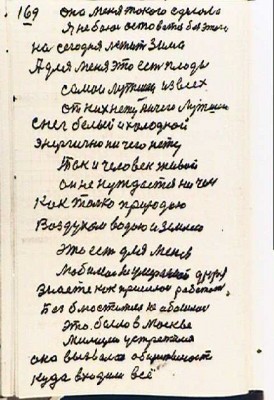 169 она меня такого сделала
я не боюсь остоватса без этого
на сегодня летит зима
А для меня это есть плоды
самои лутшии из всех
от них нету ничего лутшии
снег белый и холодной
энергично ничего нету
Так и человек живой
он не нуждается ни чем
Как только природою
Воздухом водою и Землею
Это есть для меня
мой друг
Знаете как пришлось работать
Бог
Это было в Москве
Милиция устроила
она вызвала
куда входили всё